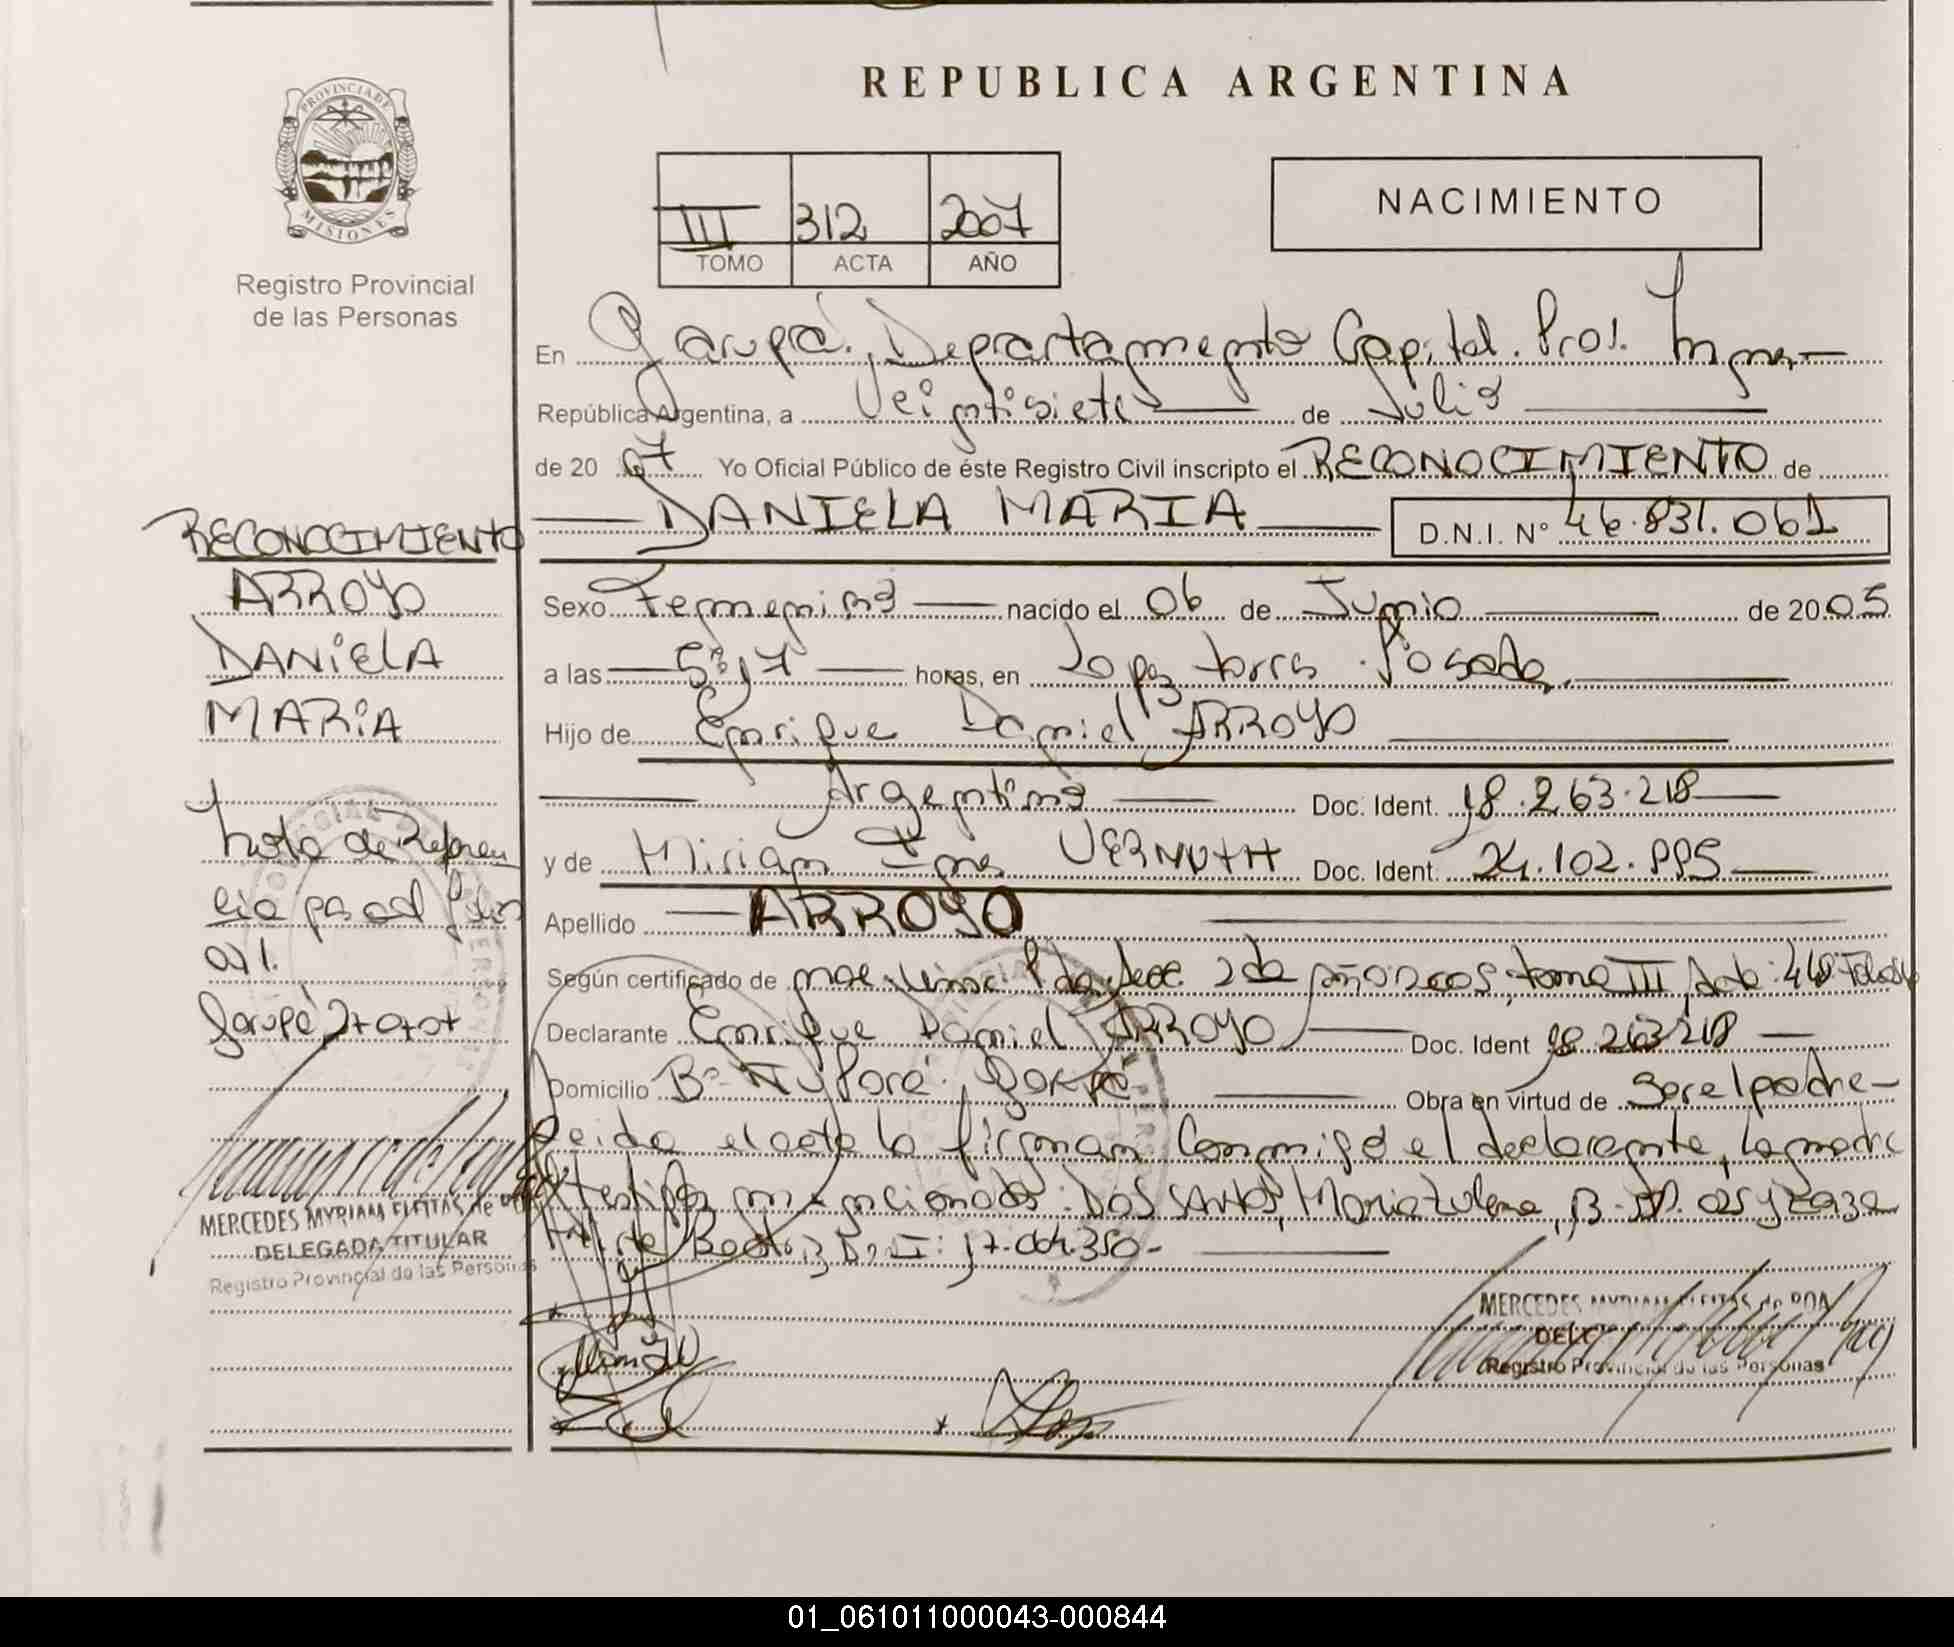 REPUBLICA ARGENTINA
PROVINCIA DE
MISIONES
Registro Provincial
de las Personas
III 312 2007
TOMO ACTA AÑO
NACIMIENTO
En Garupá, Departamento Capital. Pros.
República Argentina, a Veintisiete de Julio
de 20 07 Yo Oficial Público de éste Registro Civil inscripto el RECONOCIMIENTO de
DANIELA MARIA D.N.I. Nº 46.831.061
Sexo Femenino nacido el 06 de Junio de 20 05
a las 5:17 horas, en Lopez torres Posadas,
Hijo de Enrique Daniel ARROYO
Argentino Doc. Ident. 18.263.218
y de Miriam VERNUTH Doc. Ident. 24.102.995
Apellido ARROYO
Según certificado de 2da año 2005, tomo III,
Declarante Enrique Daniel ARROYO Doc. Ident 18.263218
Domicilio Bº Obra en virtud de Ser el padre
Leida el acta la firman Conmigo el declarante, la madre
testigos DOS SANTOS, Maria
17.004.350-
MERCEDES MYRIAM FLEITAS de ROA
Registro Provincial de las Personas
RECONOCIMIENTO
ARROYO
DANIELA
MARIA
Nota de Referen
cia
Garupá
MERCEDES MYRIAM FLEITAS de
DELEGADA TITULAR
Registro Provincial de las Personas
01_061011000043-000844